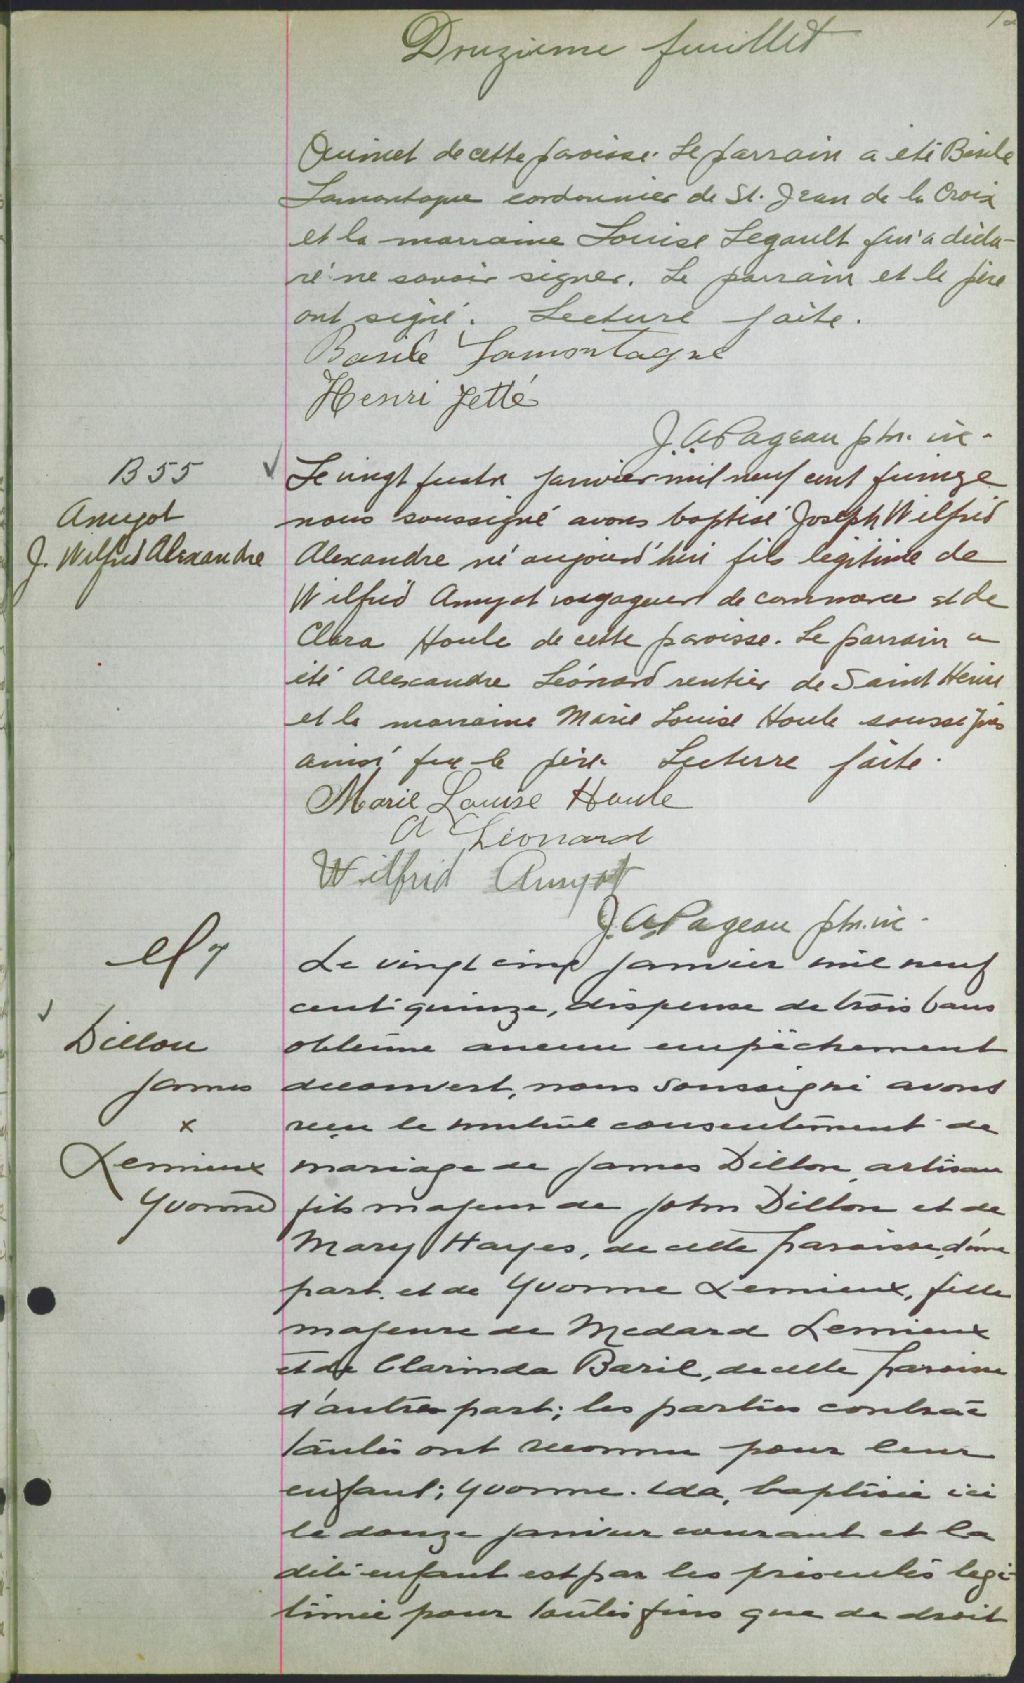 Douzième feuillet
12
Ouimet de cette paroisse. Le parrain a été Basile
Lamontagne cordonnier de St. Jean de la Croix
et la marraine Louise Legault qui a décla-
ré ne savoir signer. Le parrain et le père
ont signé. Lecture faite.
Basile Lamontagne
Henri Jetté
J. A. Pageau ptr. vic.
B 55
Amyot
J. Wilfrid Alexandre
Le vingt quatre janvier mil neuf cent quinze
nous soussigné avons baptisé Joseph Wilfrid
Alexandre né aujourd'hui fils légitime de
Wilfrid Amyot voyageur de commerce et de
Clara Houle de cette paroisse. Le parrain a
été Alexandre Léonard rentier de Saint Henri
et la marraine Marie Louise Houle soussignés
ainsi que le père. Lecture faite.
Marie Louise Houle
A Léonard
Wilfrid Amyot
J. A. Pageau ptr. vic.
M 7
Dillon
James
x
Lemieux
Yvonne
Le vingt cinq janvier mil neuf
cent quinze, dispense de trois bans
obtenue aucun empêchement
découvert, nous soussigné avons
reçu le mutuel consentement de
mariage de James Dillon, artisan
fils majeur de John Dillon et de
Mary Hayes, de cette paroisse, d'une
part, et de Yvonne Lemieux, fille
majeure de Medard Lemieux
et de Clarinda Baril, de cette paroisse
d'autre part; les parties contrac
tantes ont reconnu pour leur
enfant; Yvonne. Ida, baptisée ici
le douze janvier courant et la
dite enfant est par les présentes légi-
timée pour toutes fins que de droit